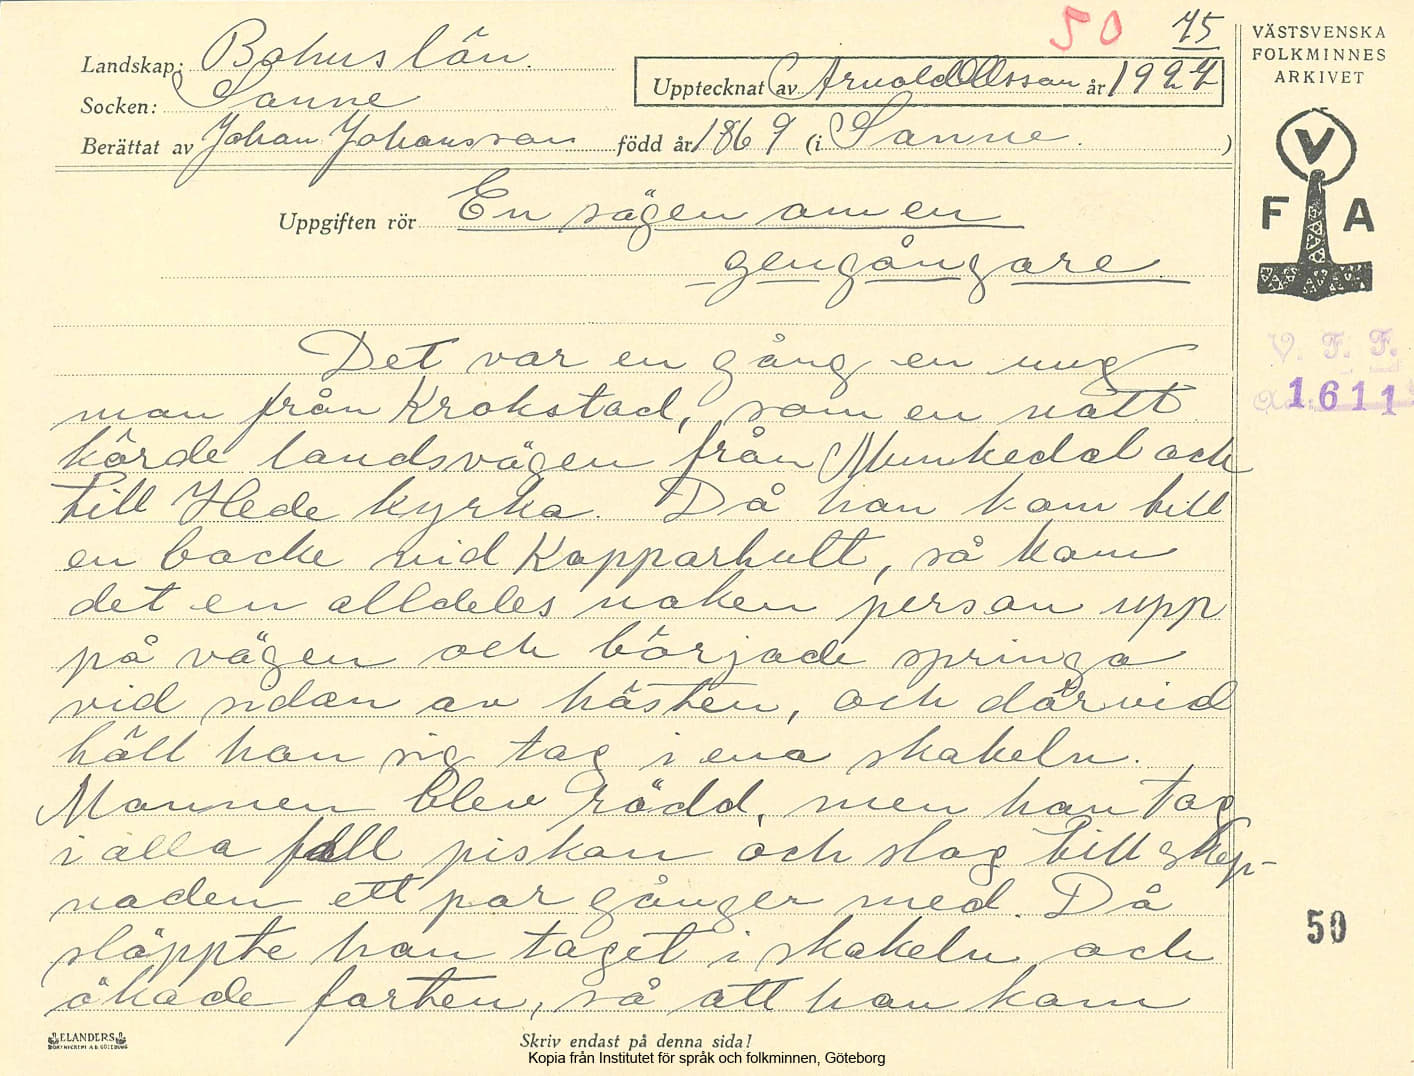 50 75
Landskap: Bohuslän.
Socken: Sanne
Upptecknat av Arnold Olsson år 1927
Berättat av Johan Johansson född år 1869 (i Sanne. )
VÄSTSVENSKA
FOLKMINNES
ARKIVET
V
F A
Uppgiften rör En sägen om en
gengångare.
V. F. F.
1611
Det var en gång en ung
man från Krokstad, som en natt
körde landsvägen från Munkedal och
till Hede kyrka. Då han kom till
en backe vid Kopparhult, så kom
det en alldeles naken person upp
på vägen och började springa
vid sidan av hästen, och därvid
höll han sig tag i ena skakeln.
Mannen blev rädd, men han tog
i alla fall piskan och slog till skep-
naden ett par gånger med. Då
släppte han taget i skakeln och
ökade farten, så att han kom
50
ELANDERS
BOKTRYCKERI A.B. GÖTEBORG
Skriv endast på denna sida!
Kopia från Institutet för språk och folkminnen, Göteborg